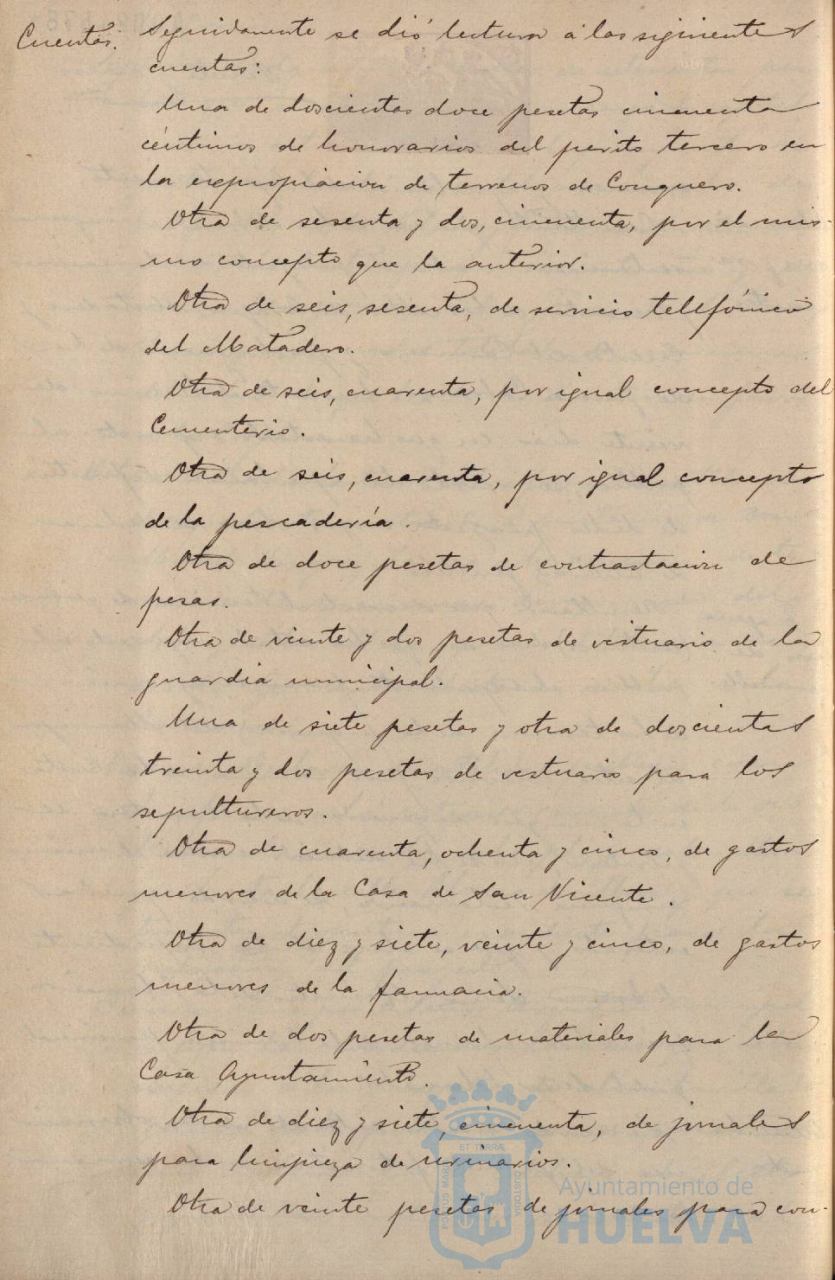 Cuentas.
Seguidamente se dió lectura á las siguientes
cuentas:
Una de doscientas doce pesetas cincuenta
céntimos de honorarios del perito tercero en
la expropiacion de terrenos de Conquero.
Otra de sesenta y dos, cincuenta, por el mis-
mo concepto que la anterior.
Otra de seis, sesenta, de servicio telefónico
del Matadero.
Otra de seis, cuarenta, por igual concepto del
Cementerio.
Otra de seis, cuarenta, por igual concepto
de la pescadería.
Otra de doce pesetas de contrastacion de
pesas.
Otra de veinte y dos pesetas de vestuario de la
guardia municipal.
Una de siete pesetas y otra de doscientas
treinta y dos pesetas de vestuario para los
sepultureros.
Otra de cuarenta, ochenta y cinco, de gastos
menores de la Casa de San Vicente.
Otra de diez y siete, veinte y cinco, de gastos
menores de la farmacia.
Otra de dos pesetas de materiales para la
Casa Ayuntamiento.
Otra de diez y siete, cincuenta, de jornales
para limpieza de urinarios.
Otra de veinte pesetas de jornales para con-
Ayuntamiento de
HUELVA